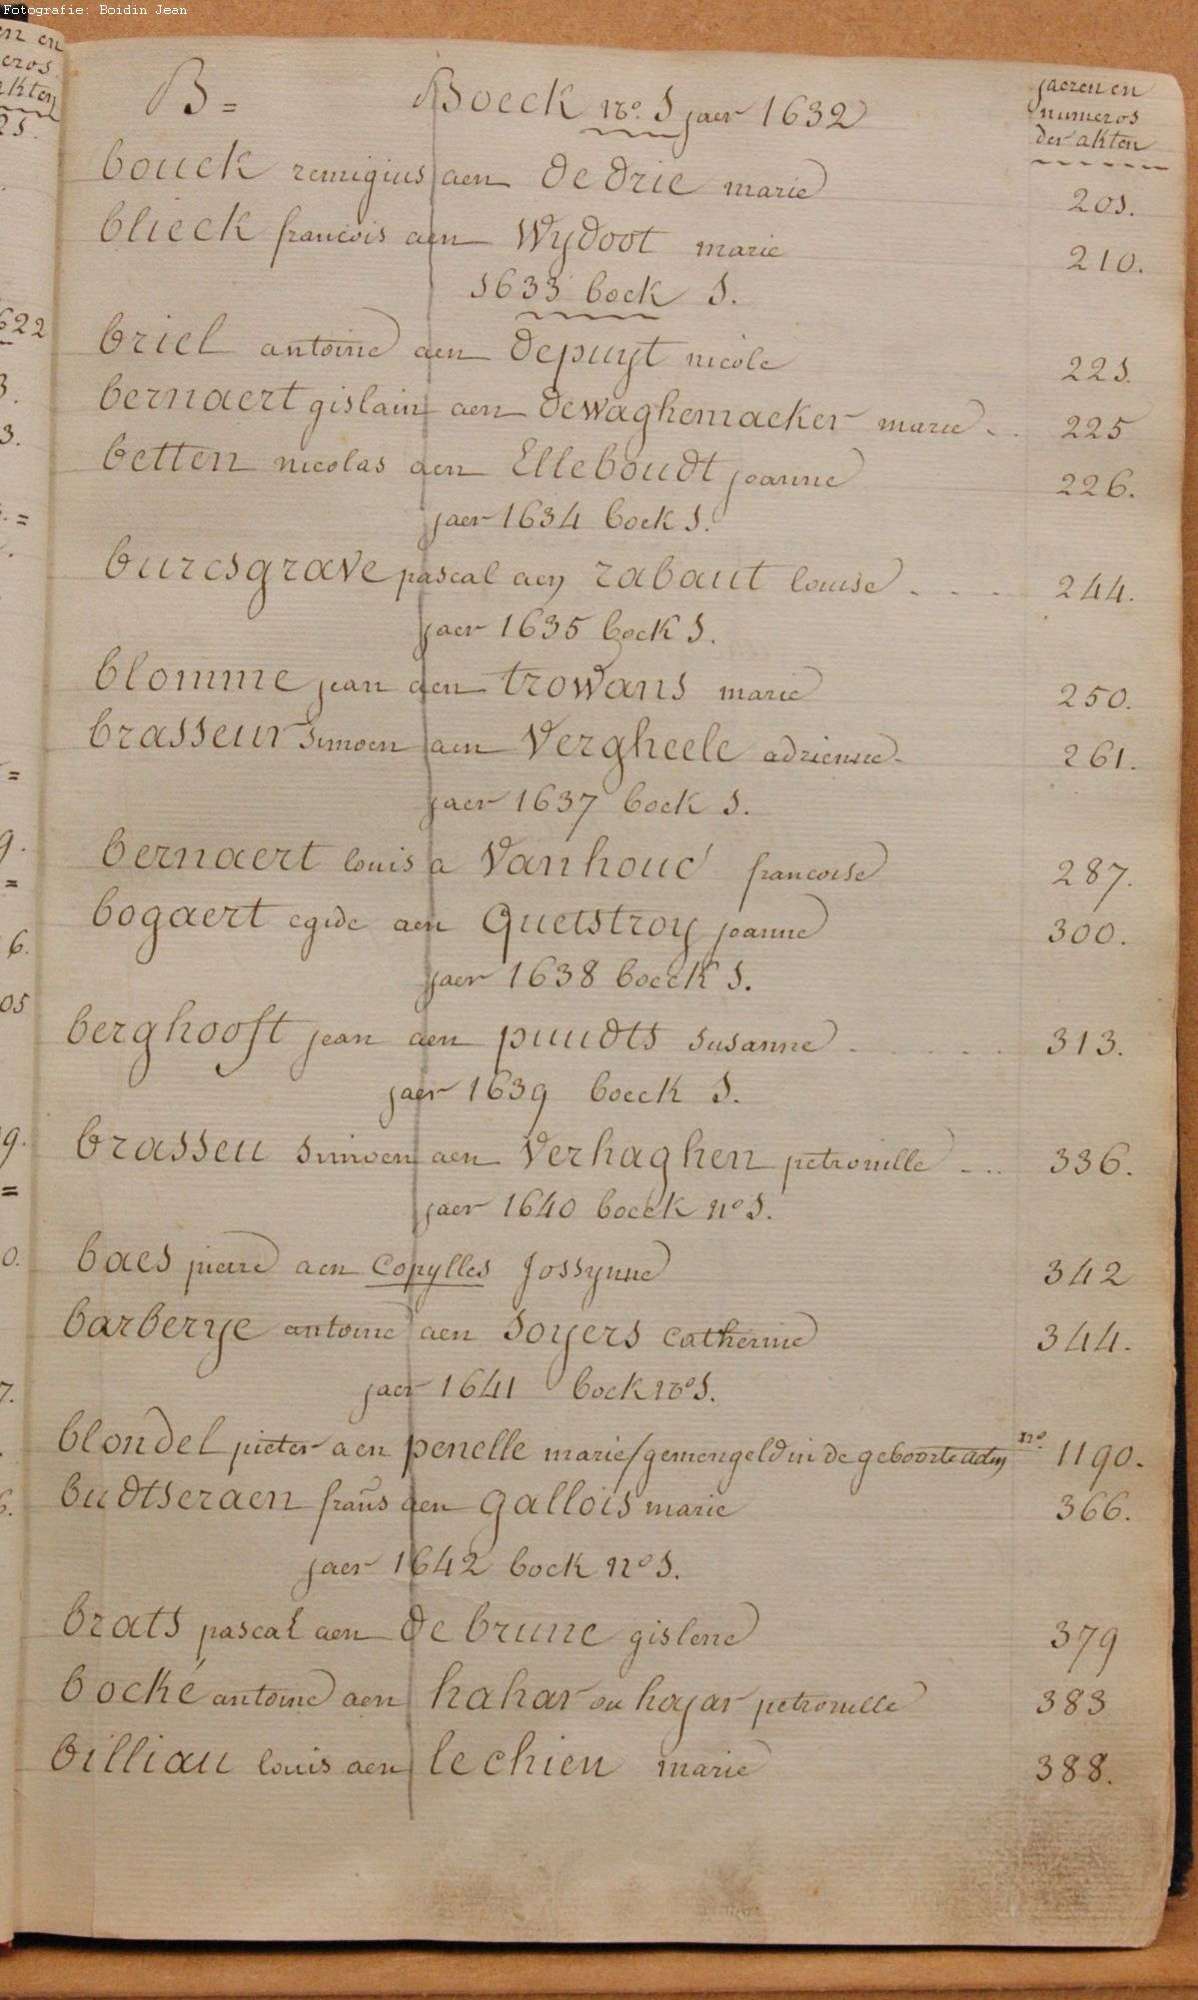 Fotografie: Boidin Jean
B =
Boeck no. 1 jaer 1632
jaeren en
numeros
der akten
bouck remigius aen de drie marie 201.
blieck francois aen Wydoot marie 210.
1633 bock 1.
briel antoine aen depuyt nicole 221.
bernaert gislain aen dewaghemaeker marie 225
betten nicolas aen Elleboudt joanne 226.
jaer 1634 bock 1.
burcsgrave pascal aen rabaut louise 244.
jaer 1635 bock 1.
blomme jean aen trowans marie 250.
brasseur simoen aen Vergheele adrienne 261.
jaer 1637 bock 1.
bernaert louis a Vanhoué francoise 287.
bogaert egide aen Quetstroy joanne 300.
jaer 1638 boeck 1.
berghooft jean aen puudts susanne 313.
jaer 1639 boeck 1.
brasseu simoen aen Verhaghen petronille 336.
jaer 1640 boeck no 1.
baes pierre aen Copylles Jossynne 342
barberye antoine aen Soyers Catherine 344.
jaer 1641 bock no 1.
blondel pieter aen penelle marie / gemengeld in de geboorte no. 1190.
budtseraen frans aen gallois marie 366.
jaer 1642 bock no 1.
brats pascal aen de brune gislene 379
bocké antoine aen hahar ou hoyar petronille 383
billiau louis aen le chien marie 388.